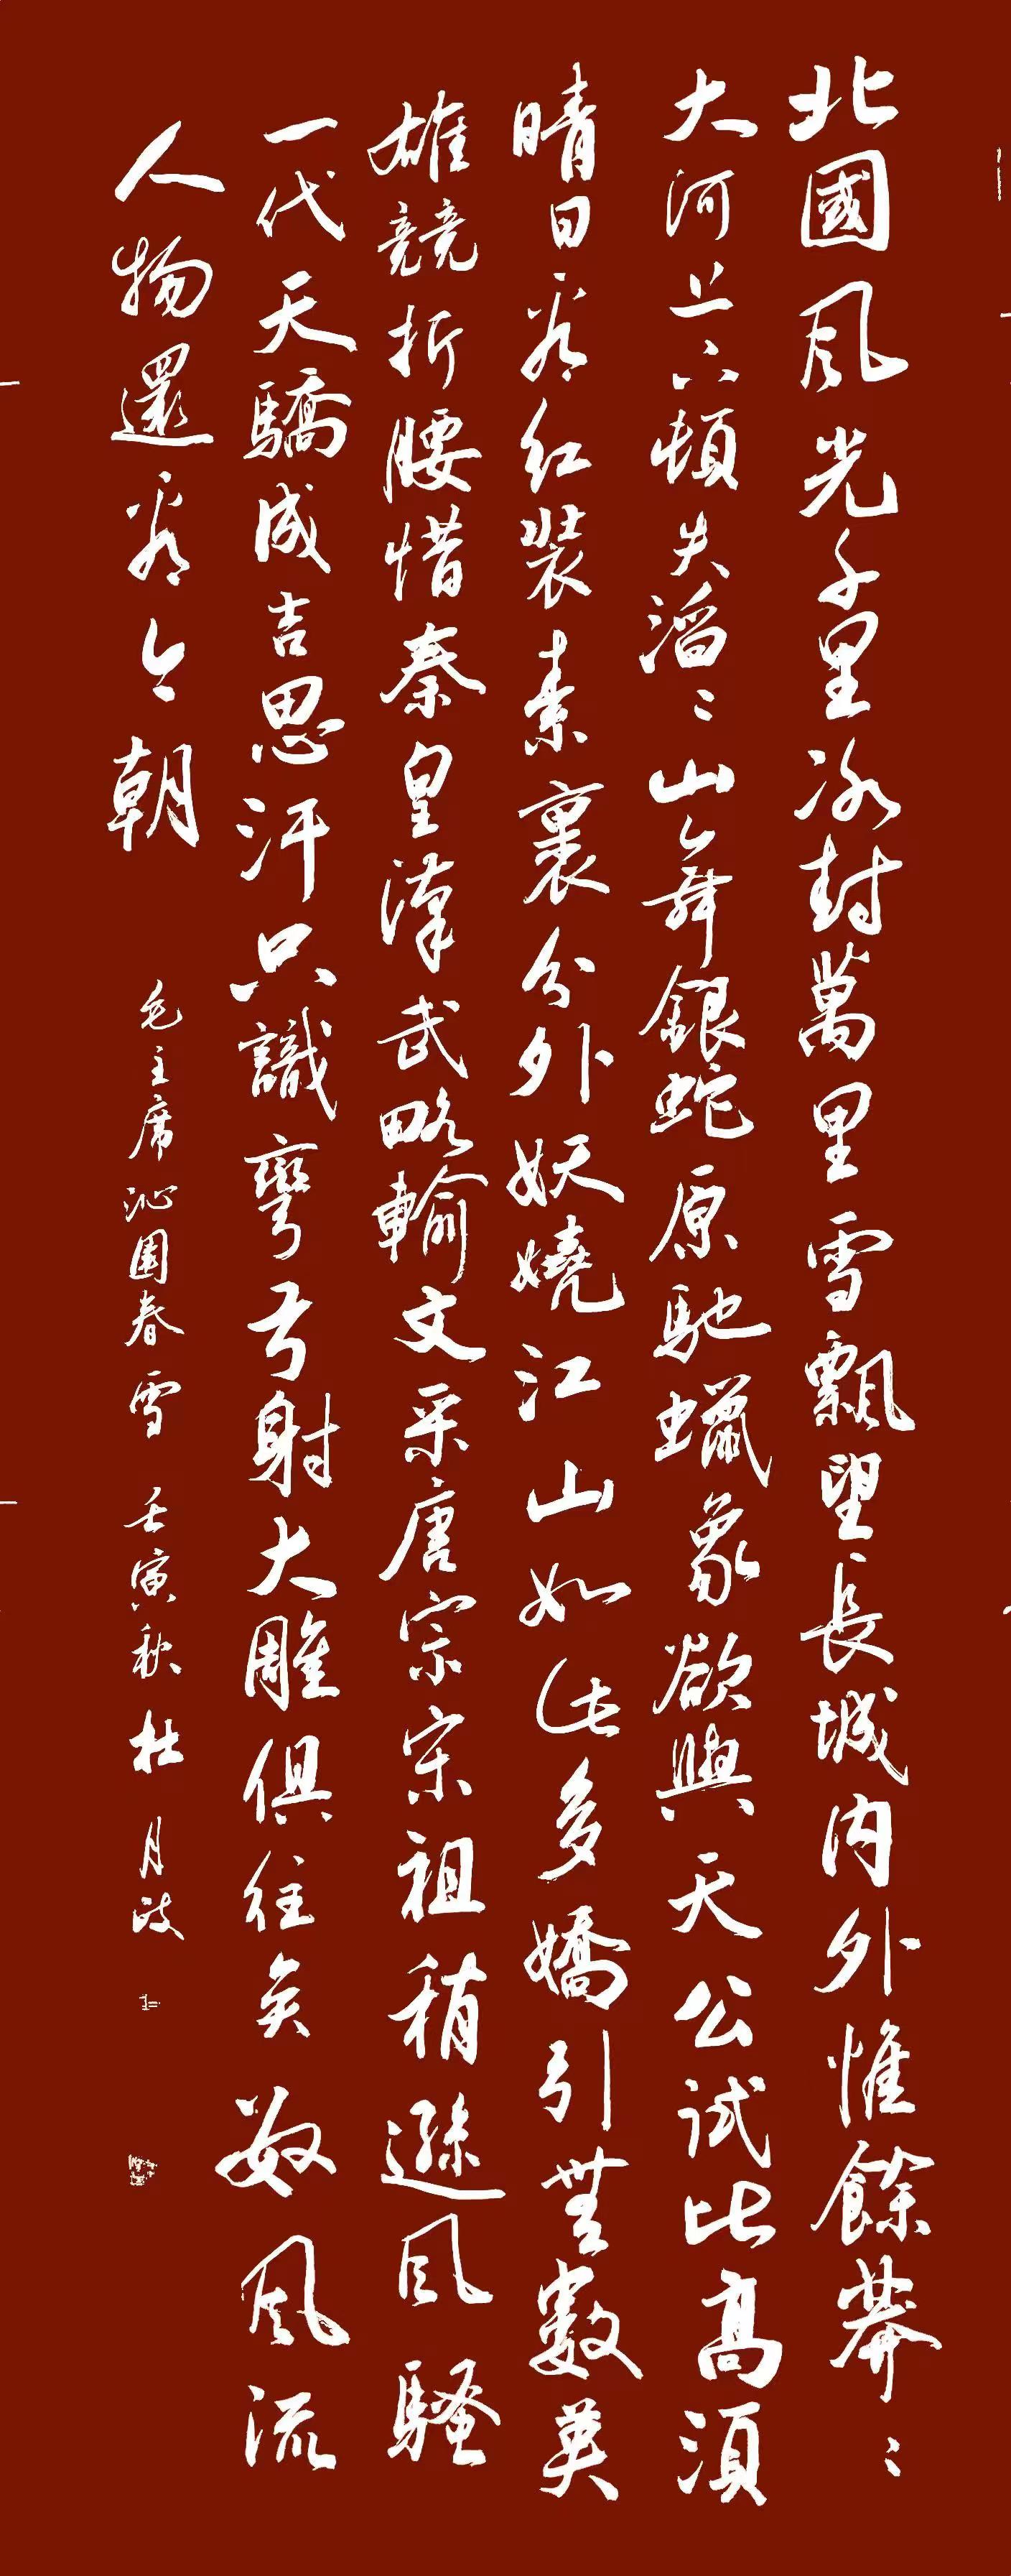 北國風光千里冰封萬里雪飄望長城內外惟餘莽〻
大河上下頓失滔〻山舞銀蛇原馳蠟象欲與天公試比高須
晴日看红裝素裹分外妖嬈江山如此多嬌引無數英
雄競折腰惜秦皇漢武略輸文采唐宗宋祖稍遜風騷
一代天驕成吉思汗只識彎弓射大雕俱往矣數風流
人物還看今朝
毛主席沁園春雪 壬寅秋 杜月波